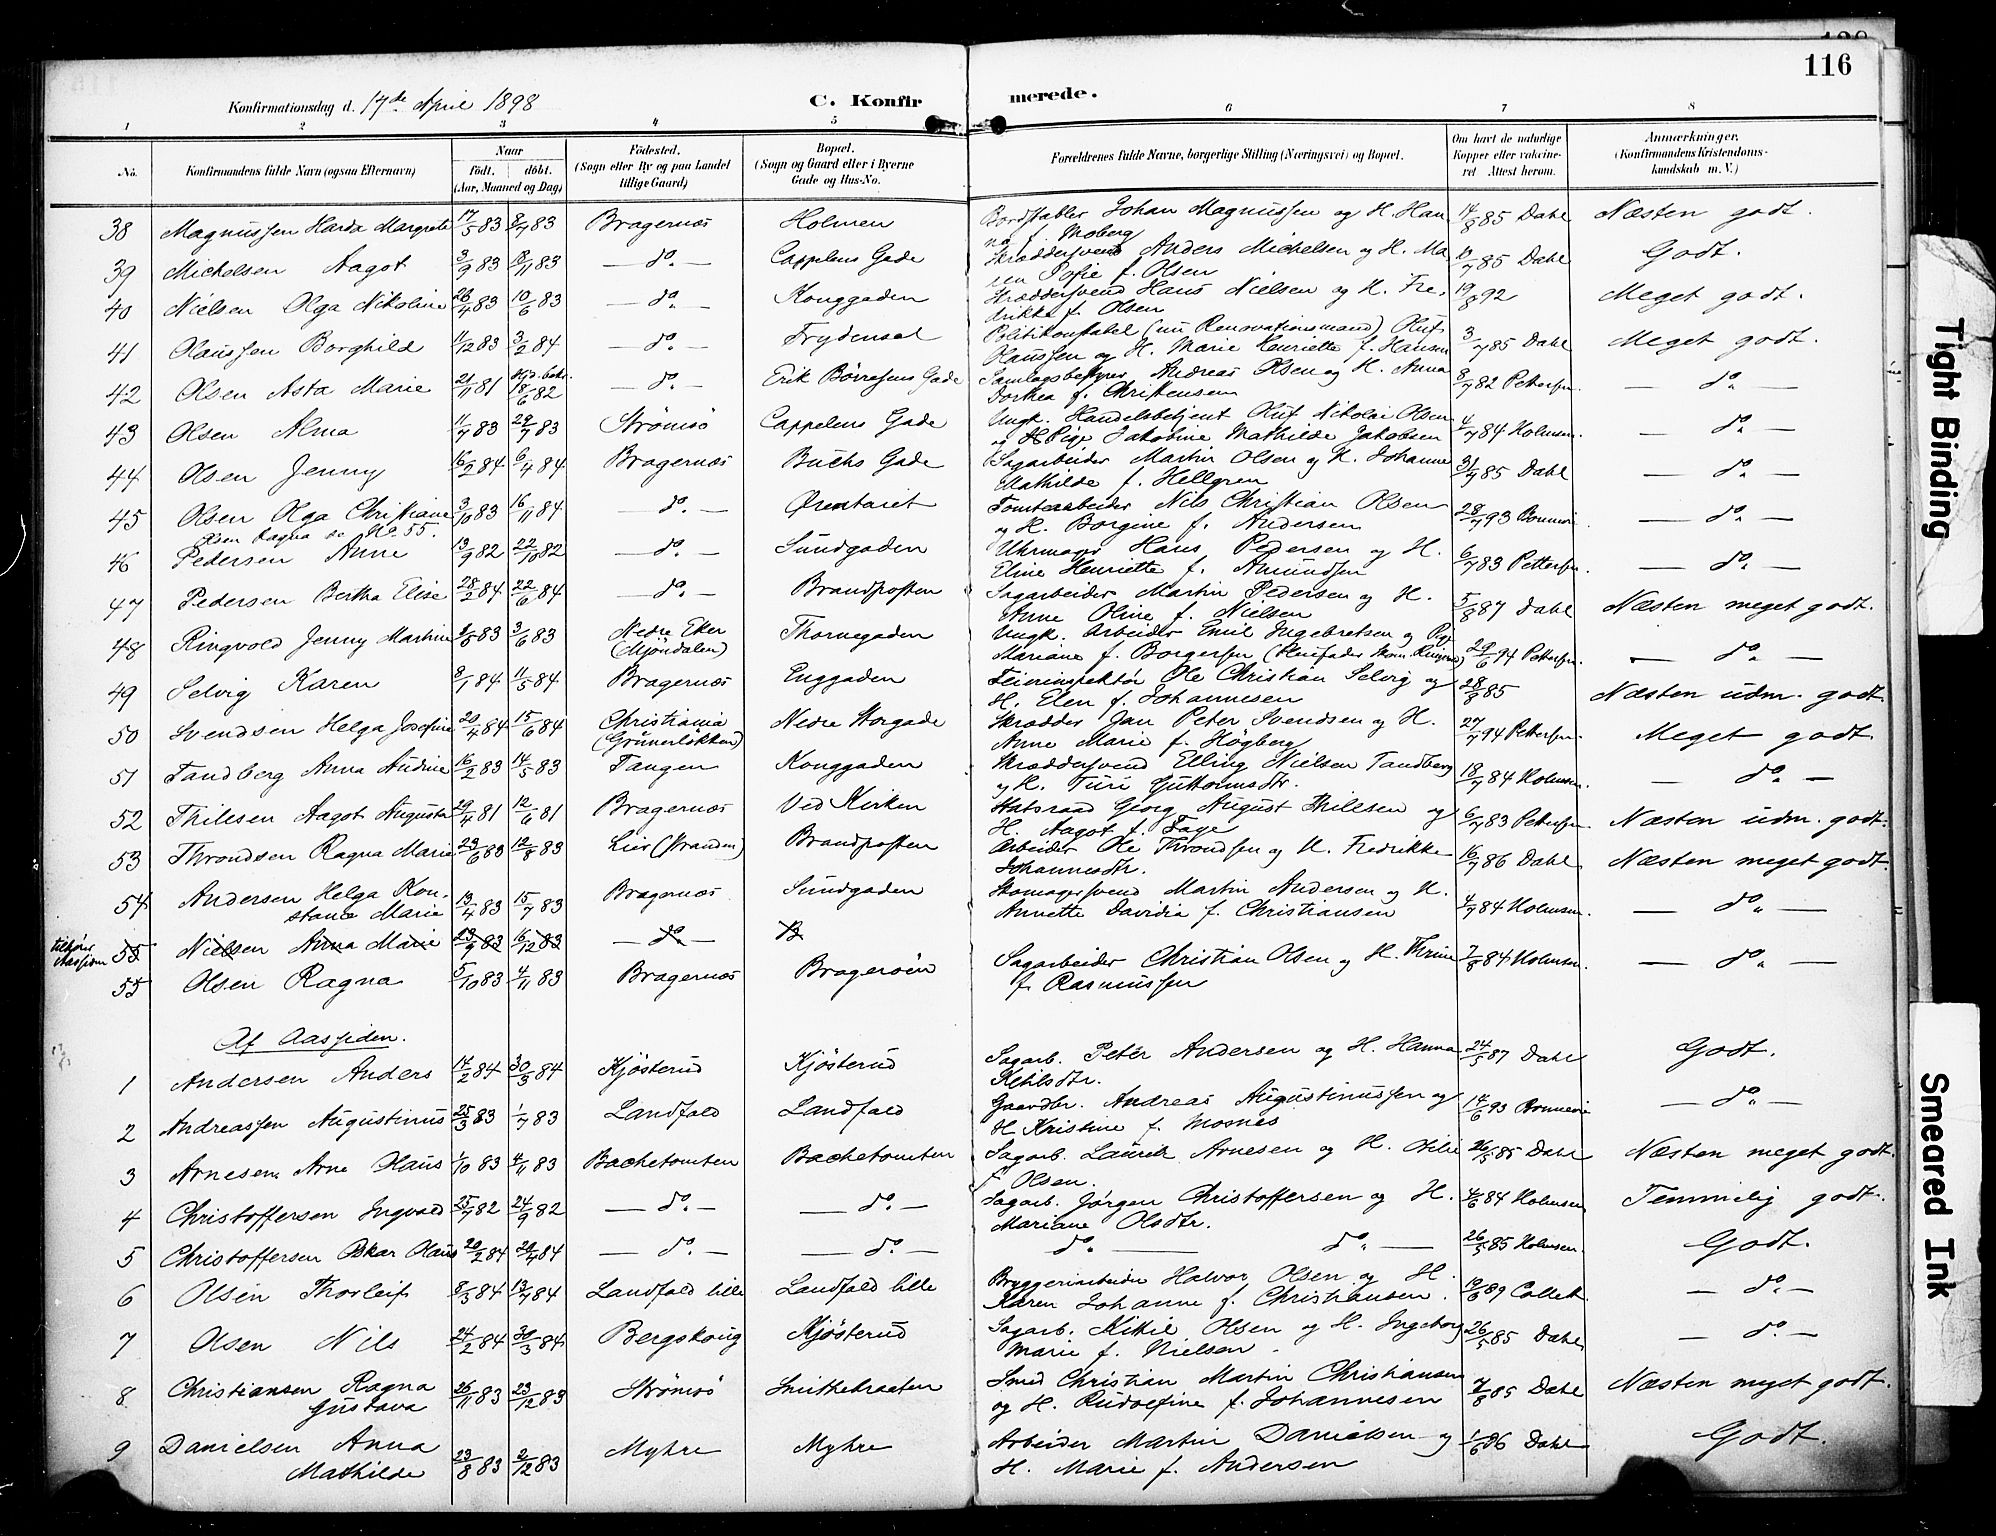 116
Konfirmationsdag d. 17de April 1898
C. Konfir merede.
1 2 3 4 5 6 7 8
No. Konfirmandens fulde Navn (ogsaa Efternavn) Naar født. døbt. (Aar, Maaned og Dag) Fødested. (Sogn eller By og paa Landet tillige Gaard) Bopæl. (Sogn og Gaard eller i Byerne Gade og Hus-No. Forældrenes fulde Navne, borgerlige Stilling (Næringsvei) og Bopæl. Om havt de naturlige Kopper eller vakcineret Attest herom. Anmærkninger. (Konfirmandens Kristendomskundskab m. V.)
38 Magnussen Harda Margrete 17/5 83 8/7 83 Bragernæs Holmen Bordstabler Johan Magnussen og H. Hanna f. Moberg 14/8 85 Dahl Næsten godt.
39 Michelsen Aagot 3/9 83 18/11 83 — do. — Cappelens Gade Skræddersvend Anders Michelsen og H. Maren Sofie f. Olsen 10/7 85 Dahl Godt.
40 Nielsen Olga Nikoline 26/4 83 10/6 83 — do. — Konggaden Skræddersvend Hans Nielsen og H. Fredrikke f. Olsen 19/8 92 Meget godt.
41 Olaussen Borghild 11/12 83 3/2 84 — do. — Frydensal Politikonstabel (nu Renovationsmand) Oluf Olaussen og H. Marie Henriette f. Hansen 3/7 85 Dahl Meget godt.
42 Olsen Asta Marie 21/11 81 18/6 82 — do. — Erik Børresens Gade Samlagsbestyrer Andreas Olsen og H. Anna Dorthea f. Christensen 8/7 82 Pettersen. — do. —
43 Olsen Alma 11/7 83 29/7 83 Strømsø Cappelens Gade Ungk. Handelsbetjent Oluf Nikolai Olsen og Pige Jakobine Mathilde Jakobsen 4/7 84 Holmsen. — do. —
44 Olsen Jenny 16/2 84 6/4 84 Bragernæs Buchs Gade Sagarbeider Martin Olsen og H. Johanne Mathilde f. Hellgren 31/7 85 Dahl — do. —
45 Olsen Olga Christiane 3/10 83 16/11 84 — do. — Ørentaret Tomtearbeider Nils Christian Olsen og H. Borgine f. Andersen 28/7 93 Bonnevi — do. —
Olsen Ragna se No. 55.
46 Pedersen Anne 13/9 82 22/10 82 — do. — Sundgaden Uhrmager Hans Pedersen og H. Eline Henriette f. Amundsen 6/7 83 Pettersen. — do. —
47 Pedersen Bertha Elise 28/2 84 22/6 84 — do. — Brandposten Sagarbeider Martin Pedersen og H. Anne Oline f. Nielsen 5/8 87 Dahl Næsten meget godt.
48 Ringvold Jenny Martine 83 3/6 83 Nedre Eker (Mjøndalen) Thornegaden Ungk. Arbeider Emil Ingebretsen og Pige Mariane f. Borgersen 29/6 94 Pettersen. — do. —
49 Selvig Karen 8/1 84 11/5 84 Bragernæs Enggaden Feierinspektør Ole Christian Selvig og H. Elen f. Johannesen 28/8 85 Næsten udm. godt
50 Svendsen Helga Josefine 20/4 84 15/6 84 Christiania (Grünerløkken) Nedre Storgade Skrædder Jan Peter Svendsen og H. Anne Marie f. Högberg 27/7 94 Pettersen. Meget godt
51 Tandberg Anna Andrine 16/2 83 14/5 83 Tangen Konggaden Skræddersvend Elling Nielsen Tandberg og H. Turi Guttormsdtr. 18/7 84 Holmsen. — do. —
52 Thilesen Aagot Augusta 29/4 81 12/6 81 Bragernæs Ved Kirken Statsraad Georg August Thilesen og H. Aagot f. Faye 6/7 83 Pettersen Næsten udm. godt.
53 Throndsen Ragna Marie 23/6 83 12/8 83 Lier (Stranden) Brandposten Arbeider Ole Throndsen og H. Fredrikke Johannesdtr. 16/7 86 Dahl Næsten meget godt.
54 Andersen Helga Konstance Marie 13/4 83 15/7 83 Bragernæs Sundgaden Skomagersvend Martin Andersen og H. Annette Davidia f. Christiansen 4/7 84 Holmsen. — do. —
tilhører Aassiden 55 Nielsen Anna Marie 23/9 83 16/12 83 — do. — B
55 Olsen Ragna 5/10 83 4/11 83 Bragernæs Bragerøen Sagarbeider Christian Olsen og H. Thrine f. Rasmussen 7/8 84 Holmsen. — do. —
Af Aassiden.
1 Andersen Anders 17/2 84 30/3 84 Kjøsterud Kjøsterud Sagarb. Peter Andersen og H. Hanna Ketilsdtr. 24/5 87 Dahl Godt.
2 Andreassen Augustinus 25/3 83 1/7 83 Landfald Landfald Gaardbr. Andreas Augustinussen og H Kristine f. Mosnes 14/6 93 Bonnevie — do. —
3 Arnesen Arne Olaus 1/10 83 4/11 83 Bachetomten Bachetomten Sagarb. Laurits Arnesen og H. f. Olsen. 26/5 85 Dahl Næsten meget godt.
4 Christoffersen Ingvald 25/7 82 24/9 82 — do. — — do. — Sagarb. Jørgen Christoffersen og H. Mariane Olsdtr. 4/6 84 Holmsen Temmelig godt.
5 Christoffersen Oskar Olaus 20/2 84 20/4 84 — do. — — do. — do. — do. — 26/5 85 Holmsen. Godt.
6 Olsen Thorleif 8/3 84 13/4 84 Landfald lille Landfald lille Bryggeriarbeider Halvor Olsen og H. Karen Johanne f. Christiansen. 19/6 89 Collett. — do. —
7 Olsen Nils 24/2 84 30/3 84 Bergskoug Kjøsterud Sagarb. Kittil Olsen og H. Ingeborg Marie f. Nielsen. 26/5 85 Dahl — do. —
8 Christiansen Ragna Gustava 26/11 83 23/12 83 Strømsø Smithebraaten Smed Christian Martin Christiansen og H. Rudolfine f. Johannesen 7/8 85 Dahl Næsten meget godt.
9 Danielsen Anna Mathilde 23/8 83 2/12 83 Myhre Myhre Arbeider Martin Danielsen og H. Marie f. Andersen 1/6 86 Dahl Godt.
Tight Binding
Smeared Ink